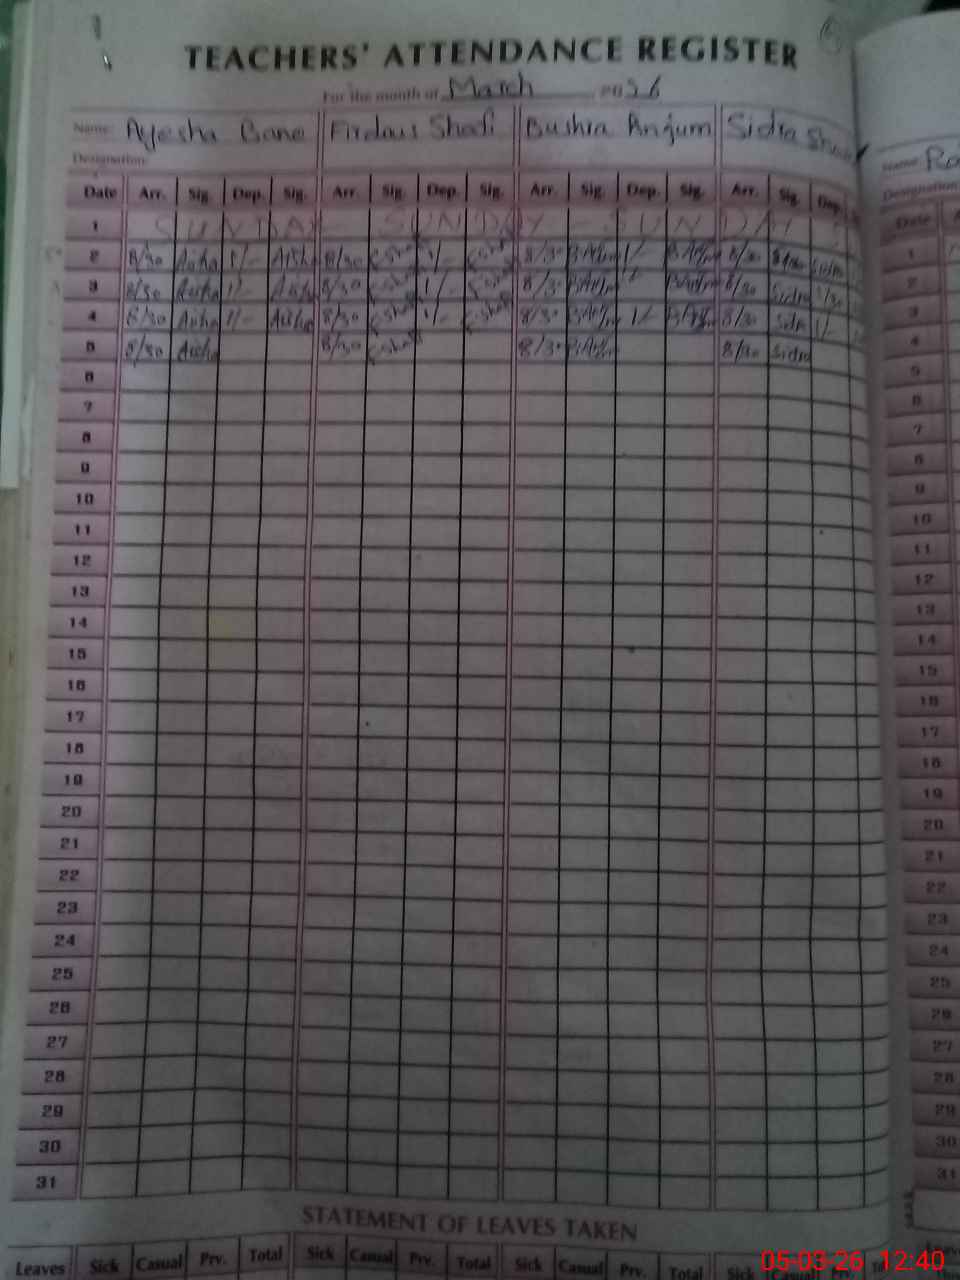 TEACHERS' ATTENDANCE REGISTER
For the month of March 2026
Name: Ayesha Bano Firdous Shafi Bushra Anjum Sidra
Designation:
Date Arr. Sig. Dep. Sig. Arr. Sig. Dep. Sig. Arr. Sig. Dep. Sig. Arr. Sig. Dep.
1 SUNDAY - SUNDAY - SUNDAY
2 8/30 Aisha 1/- Aisha 8/30 1/- 8/30 1/- 8/30 Sidra
3 8/30 Aisha 1/- Aisha 8/30 1/- 8/30 8/30 Sidra
4 8/30 Aisha 1/- Aisha 8/30 1/- 8/30 1/- 8/30 Sidra 1/-
5 8/30 Aisha 8/30 8/30 8/30 Sidra
6
7
8
9
10
11
12
13
14
15
16
17
18
19
20
21
22
23
24
25
26
27
28
29
30
31
STATEMENT OF LEAVES TAKEN
Leaves Sick Casual Prv. Total Sick Casual Prv. Total Sick Casual Prv. Total Sick Casual
Name:
Designation
Date
1
2
3
4
5
6
7
8
9
10
11
12
13
14
15
16
17
18
19
20
21
22
23
24
25
26
27
28
29
30
31
05-03-26 12:40